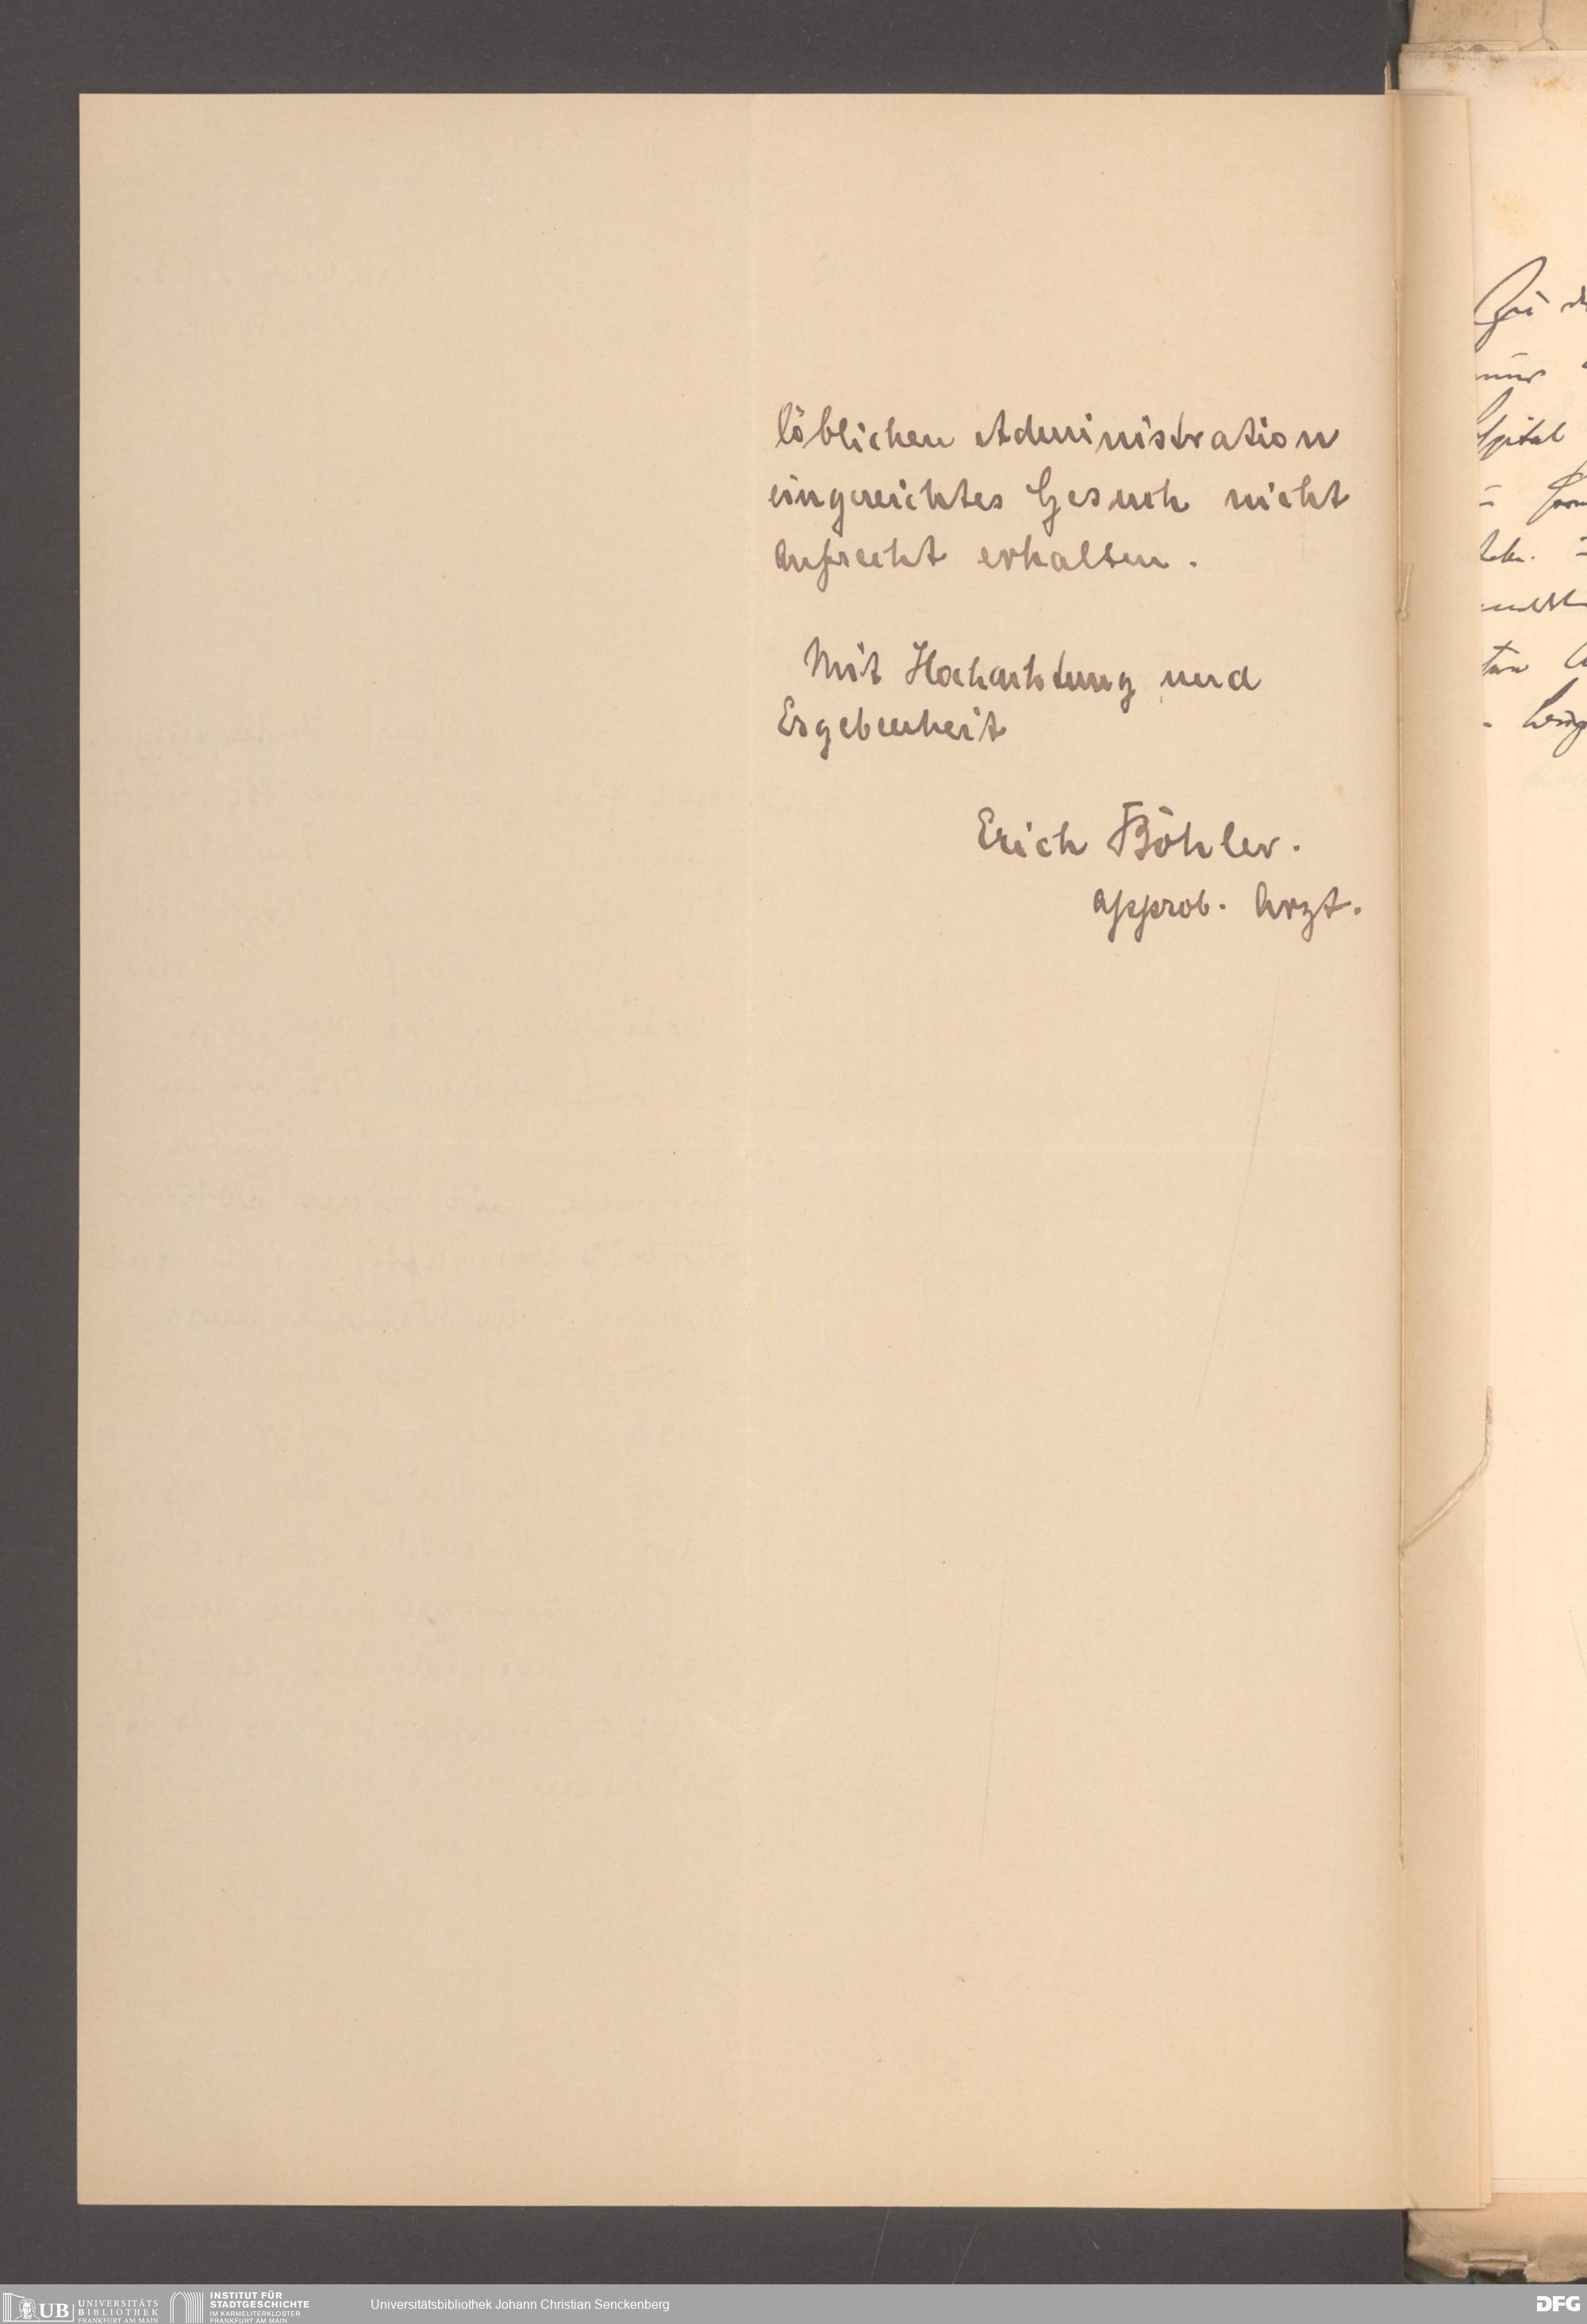 löblichen Administration
eingereichtes Gesuch nicht
aufrecht erhalten.
Mit Hochachtung und
Ergebenheit
Erich Böhler.
approb. Arzt.
Spital
UB UNIVERSITÄTS
BIBLIOTHEK
FRANKFURT AM MAIN
INSTITUT FÜR
STADTGESCHICHTE
IM KARMELITERKLOSTER
FRANKFURT AM MAIN
Universitätsbibliothek Johann Christian Senckenberg
DFG